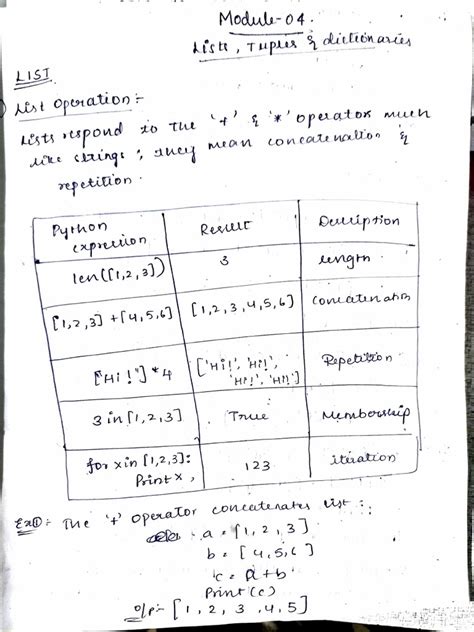 Module-04.
Lists, Tuples & dictionaries
LIST
List Operation :-
Lists respond to the '+' & '*' operator much
like strings; they mean concatenation &
repetition.
Python expression | Result | Description
len([1,2,3]) | 3 | length
[1,2,3] +[4,5,6] | [1,2,3,4,5,6] | concatenation
["Hi!"]*4 | ['Hi!', 'Hi!', 'Hi!', 'Hi!'] | Repetition
3 in [1,2,3] | True | Membership
for x in [1,2,3]: Print x, | 123 | iteration
Ex①:- The '+' operator concatenates list :
a = [1,2,3]
b = [4,5,6]
c = a+b
Print(c)
o/p:- [1,2,3,4,5]